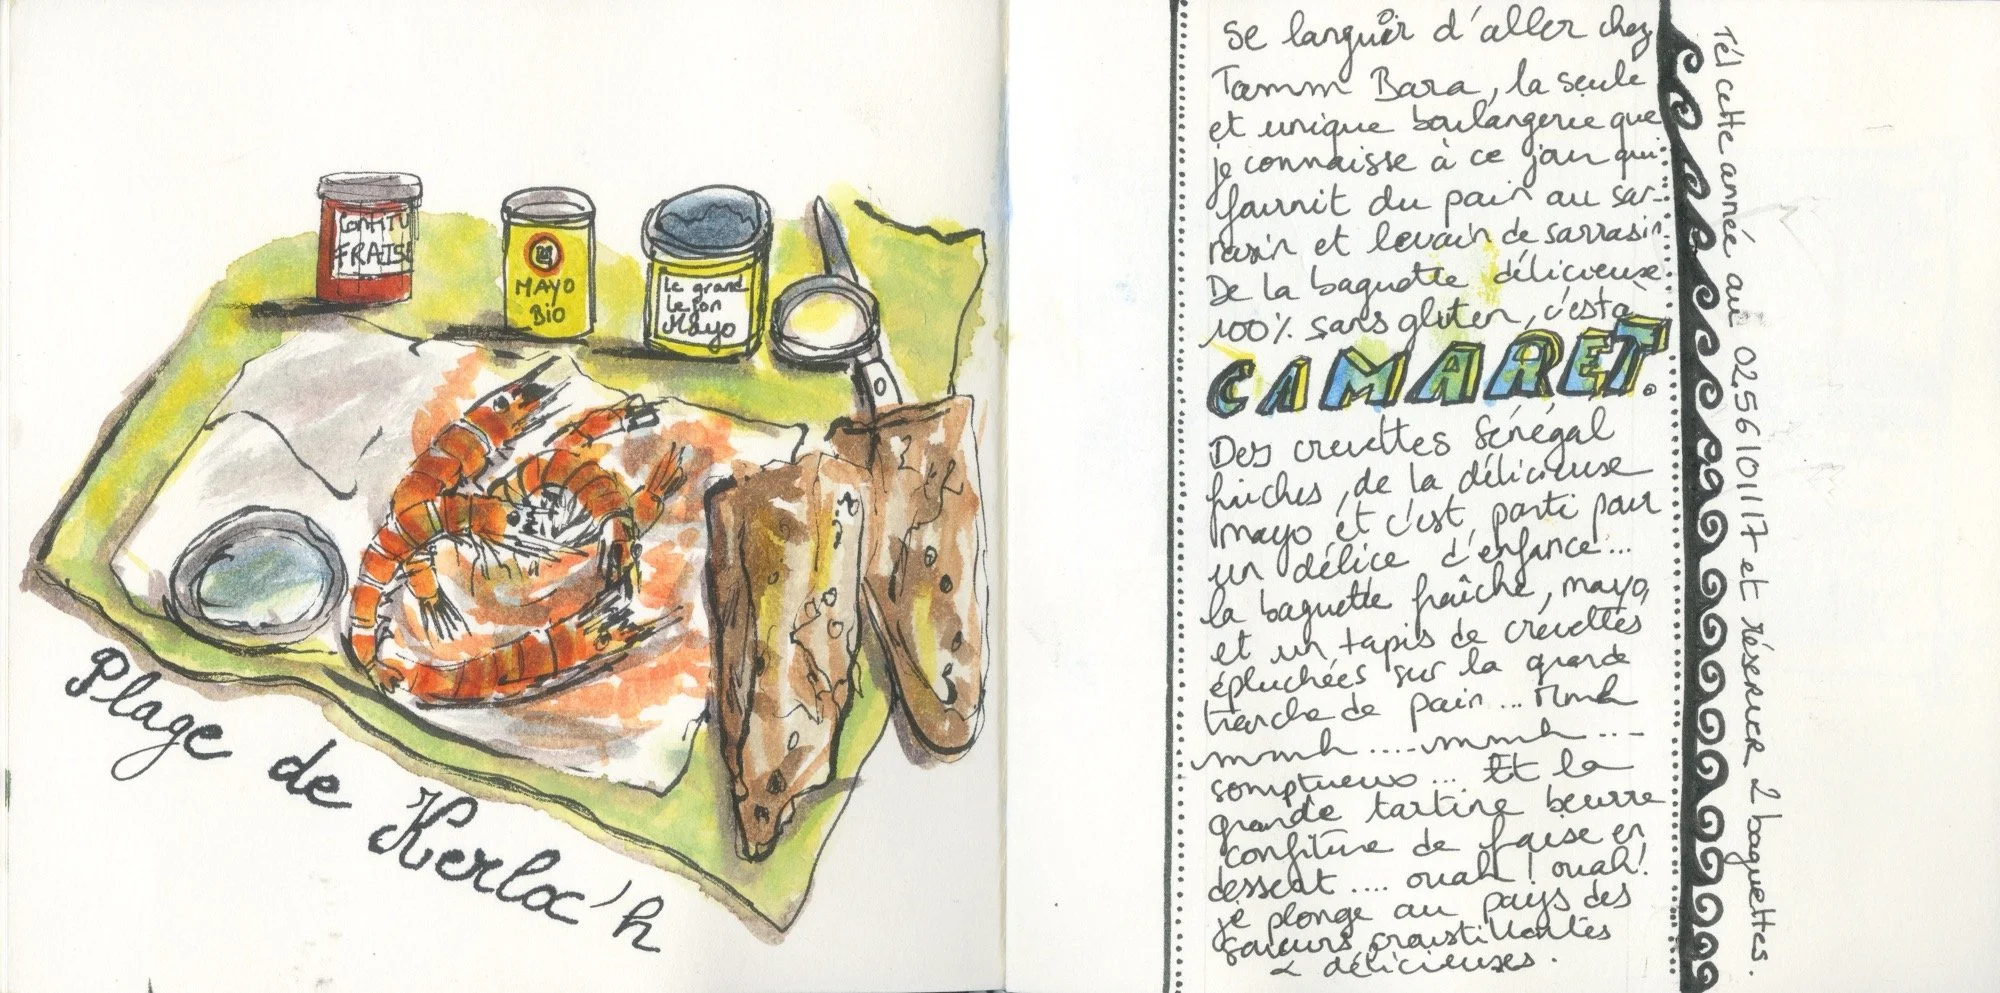 CONFITU
FRAISE
MAYO
BIO
Le grand
Lejon
Mayo
Plage de Kerloc'h
Se languir d'aller chez
Tamm Bara, la seule
et unique boulangerie que
je connaisse à ce jour qui
fournit du pain au sar-
rasin et levain de sarrasin.
De la baguette délicieuse
100% sans gluten, c'est à
CAMARET.
Des crevettes Sénégal
fraîches, de la délicieuse
mayo et c'est parti pour
un délice d'enfance...
la baguette fraîche, mayo,
et un tapis de crevettes
épluchées sur la grande
tranche de pain... Mmh
mmmh .... mmmh ...
somptueux... Et la
grande tartine beurre
confiture de fraise en
dessert .... ouah ! ouah!
je plonge au pays des
saveurs croustillantes
& délicieuses.
Tél cette année au 0256101117 et réserver 2 baguettes.